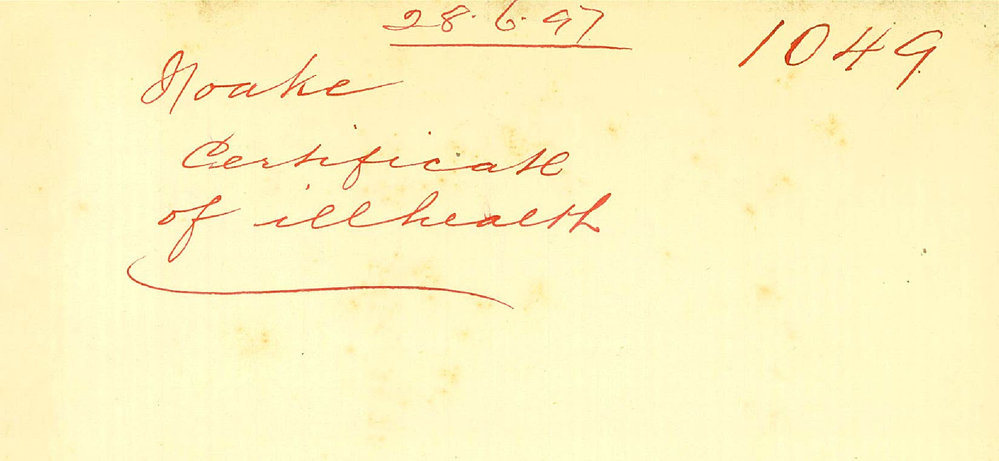 28.6.97
1049
Noake
Certificate
of illhealth